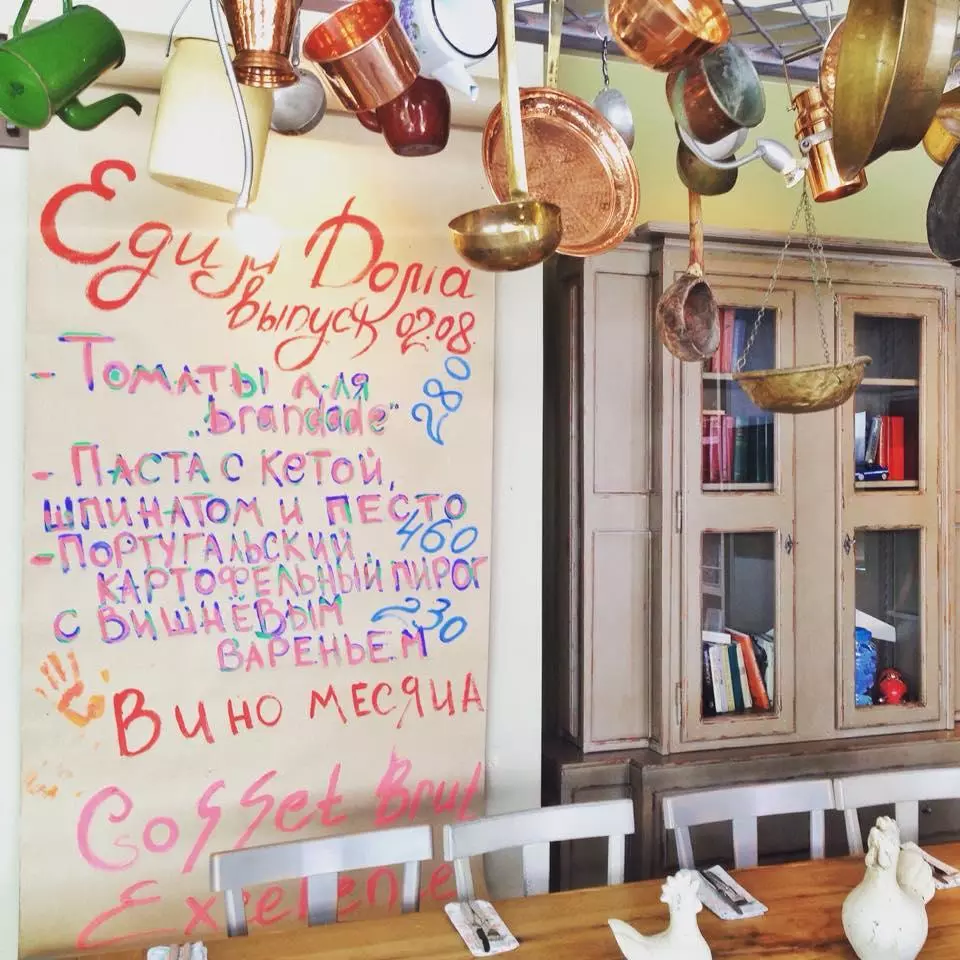 Едим Дома
выпуск 02.08
- Томаты а-ля
„brandade" 280
- Паста с кетой,
шпинатом и песто
460
- Португальский
картофельный пирог
с вишнёвым 230
вареньем
Вино месяца
Gosset Brut
Exelence